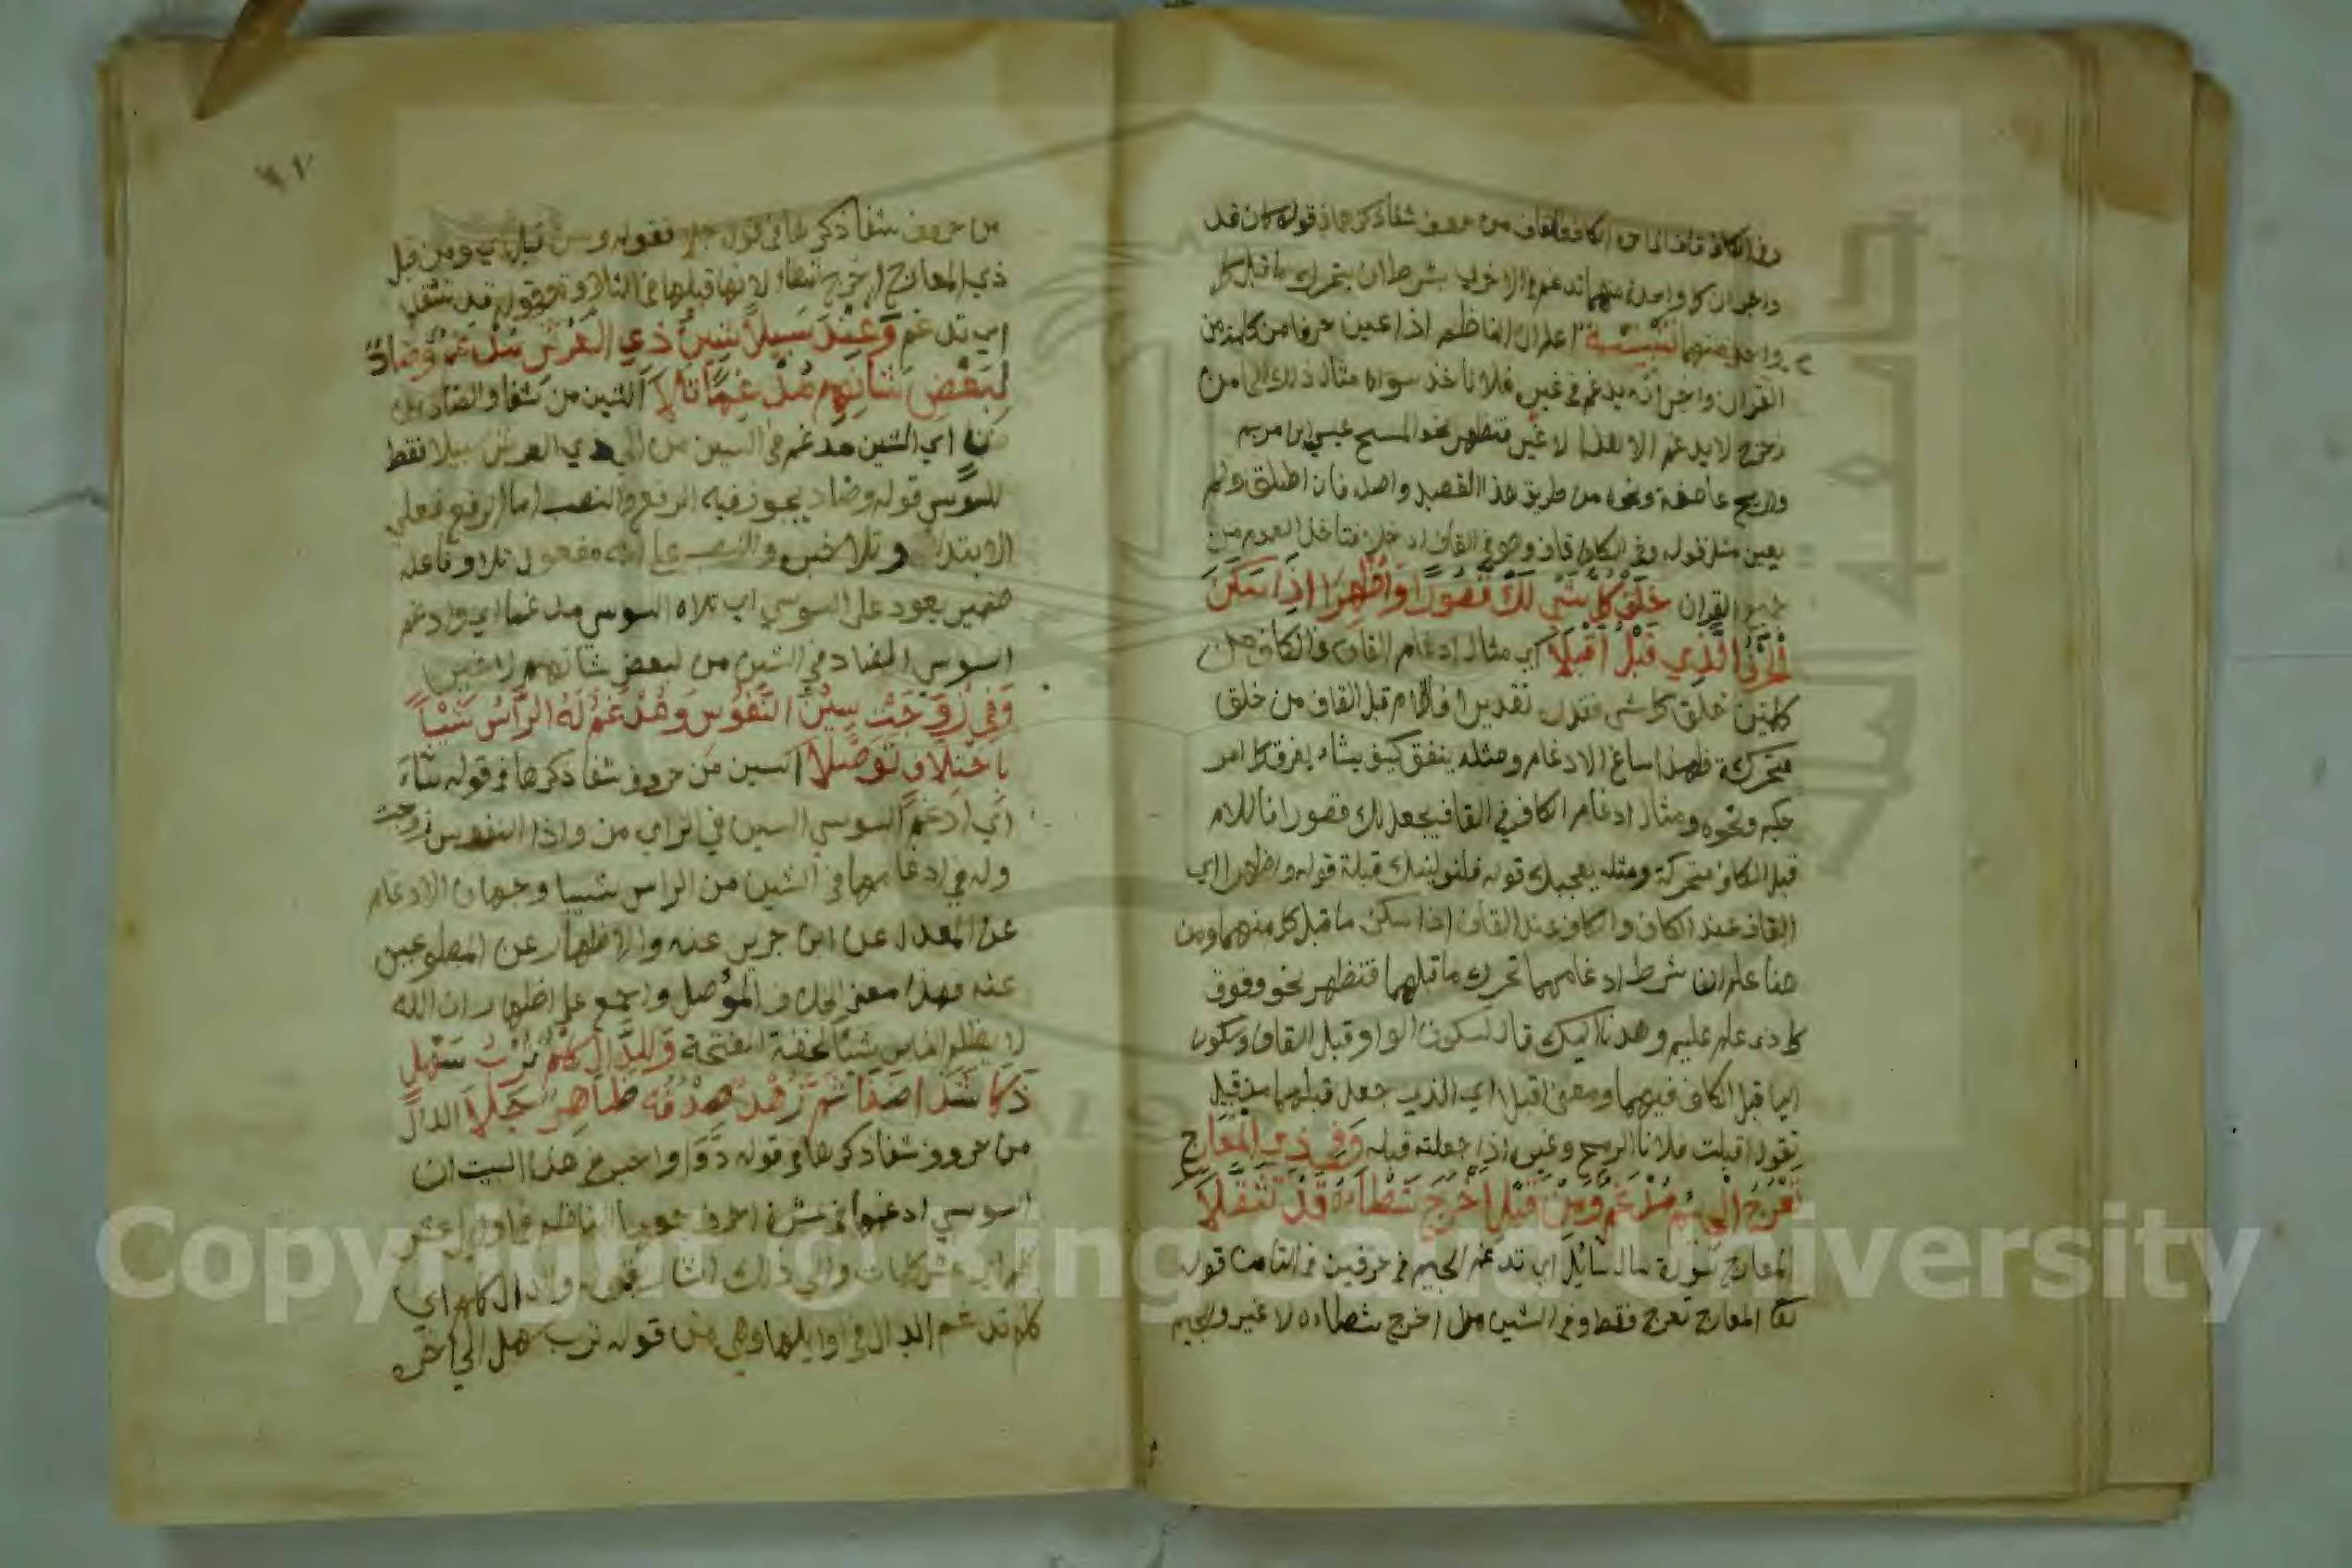 وفي الكاف قاف الى اخره الكاف والقاف من حروف شفا ذكرهما في قوله كان قد
واخبر ان كل واحدة منهما تدغم في الاخرى بشرط ان يتحرك ما قبل كل
واحد منهما تنبيه اعلم ان الناظم اذا عين حرفا من كلمة من
القران واخبر انه يدغم في غيره فلا تاخذ سواه مثال ذلك الحا من
زحزح لا يدغم الا هذا لا غير فتظهر نحو المسيح عيسى ابن مريم
والريح عاصفة ونحوه من طريق هذا القصيد واصله فان اطلق ولم
يعين مثل قوله وفي الكاف قاف وهو في القاف ادخلا فتاخذ العموم من
جميع القران خلق كل شي لك قصورا واظهرا اذا سكن
الحرف الذي قبل اقبلا اي مثال ادغام القاف في الكاف من
كلمتين خلق كل شي فقدره تقديرا فاللام قبل القاف من خلق
متحركة فلهذا ساغ الادغام ومثله ينفق كيف يشاء يفرق كل امر
حكيم ونحوه ومثال ادغام الكاف في القاف يجعل لك قصورا فاللام
قبل الكاف متحركة ومثله يعجبك قوله فلنولينك قبلة قوله واظهرا اي
القاف عند الكاف والكاف عند القاف اذا سكن ما قبل كل منهما ومن
هنا علم ان شرط ادغامهما تحرك ما قبلهما فتظهر نحو وفوق
كل ذى علم عليم وهدنا اليك قال لسكون الواو قبل القاف وسكون
اليا قبل الكاف فيهما ومعنى اقبلا اي الذي جعل قبلهما من قبيل
تقول اقبلت فلانا الرمح وغيره اذا جعلته قبله وفي ذي المعارج
تعرج الجيم مدغم ومن قبل اخرج شطأه قد تثقلا
المعارج بسورة سال سائل اي تدغم الجيم في حرفين في التا من قوله
المعارج تعرج فقط وفي الشين من اخرج شطاه لا غير والجيم
٩١
من حروف شفا ذكرها في قوله جلا فقوله ومن قبل اي ومن قبل
ذي المعارج اخرج شطاه لانها قبلها في التلاوة وقوله قد تثقلا
اي تدغم وعند سبيلا شين ذي العرش مدغم وضاد
لبعض شانهم مدغما تلا الشين من شفا والضاد من
اي الشين مدغم في السين من الى ذي العرش سبيلا فقط
للسوسي قوله وضاد يجوز فيه الرفع والنصب اما الرفع فعلى
الابتداء وتلا خبره والنصب على انه مفعول تلا وفاعله
ضمير يعود على السوسي اي تلاه السوسي مدغما اي وادغم
السوسي الضاد في الشين من لبعض شانهم لا غير
وفي زوجت سين النفوس ومدغم له الراس شيبا
باختلاف توصلا السين من حروف شفا ذكرها في قوله شاء
اي ادغم السوسي السين في الزاي من واذا النفوس زوجت
وله في ادغامها في الشين من الراس شيبا وجهان الادغام
عن المعدل عن ابن جرير عنه والاظهار عن المطوعين
عنه فهذا معنى الخلاف الموصل واجمع على اظهار ان الله
لا يظلم الناس شيئا لخفة الفتحة وللدال كلم ترب سهل
ذكا شذا ضفا ثم زهد صدقه ظاهر جلا الدال
من حروف شفا ذكرها في قوله دوا واخبر في هذا البيت ان
السوسي ادغمها في عشرة احرف جمعها الناظم في اوايل عشر
كلم اي عشر كلمات والى ذلك اشار بقوله وللدال كلم اي
كلم تدغم الدال في اوايلها وهي من قوله ترب سهل الى آخره